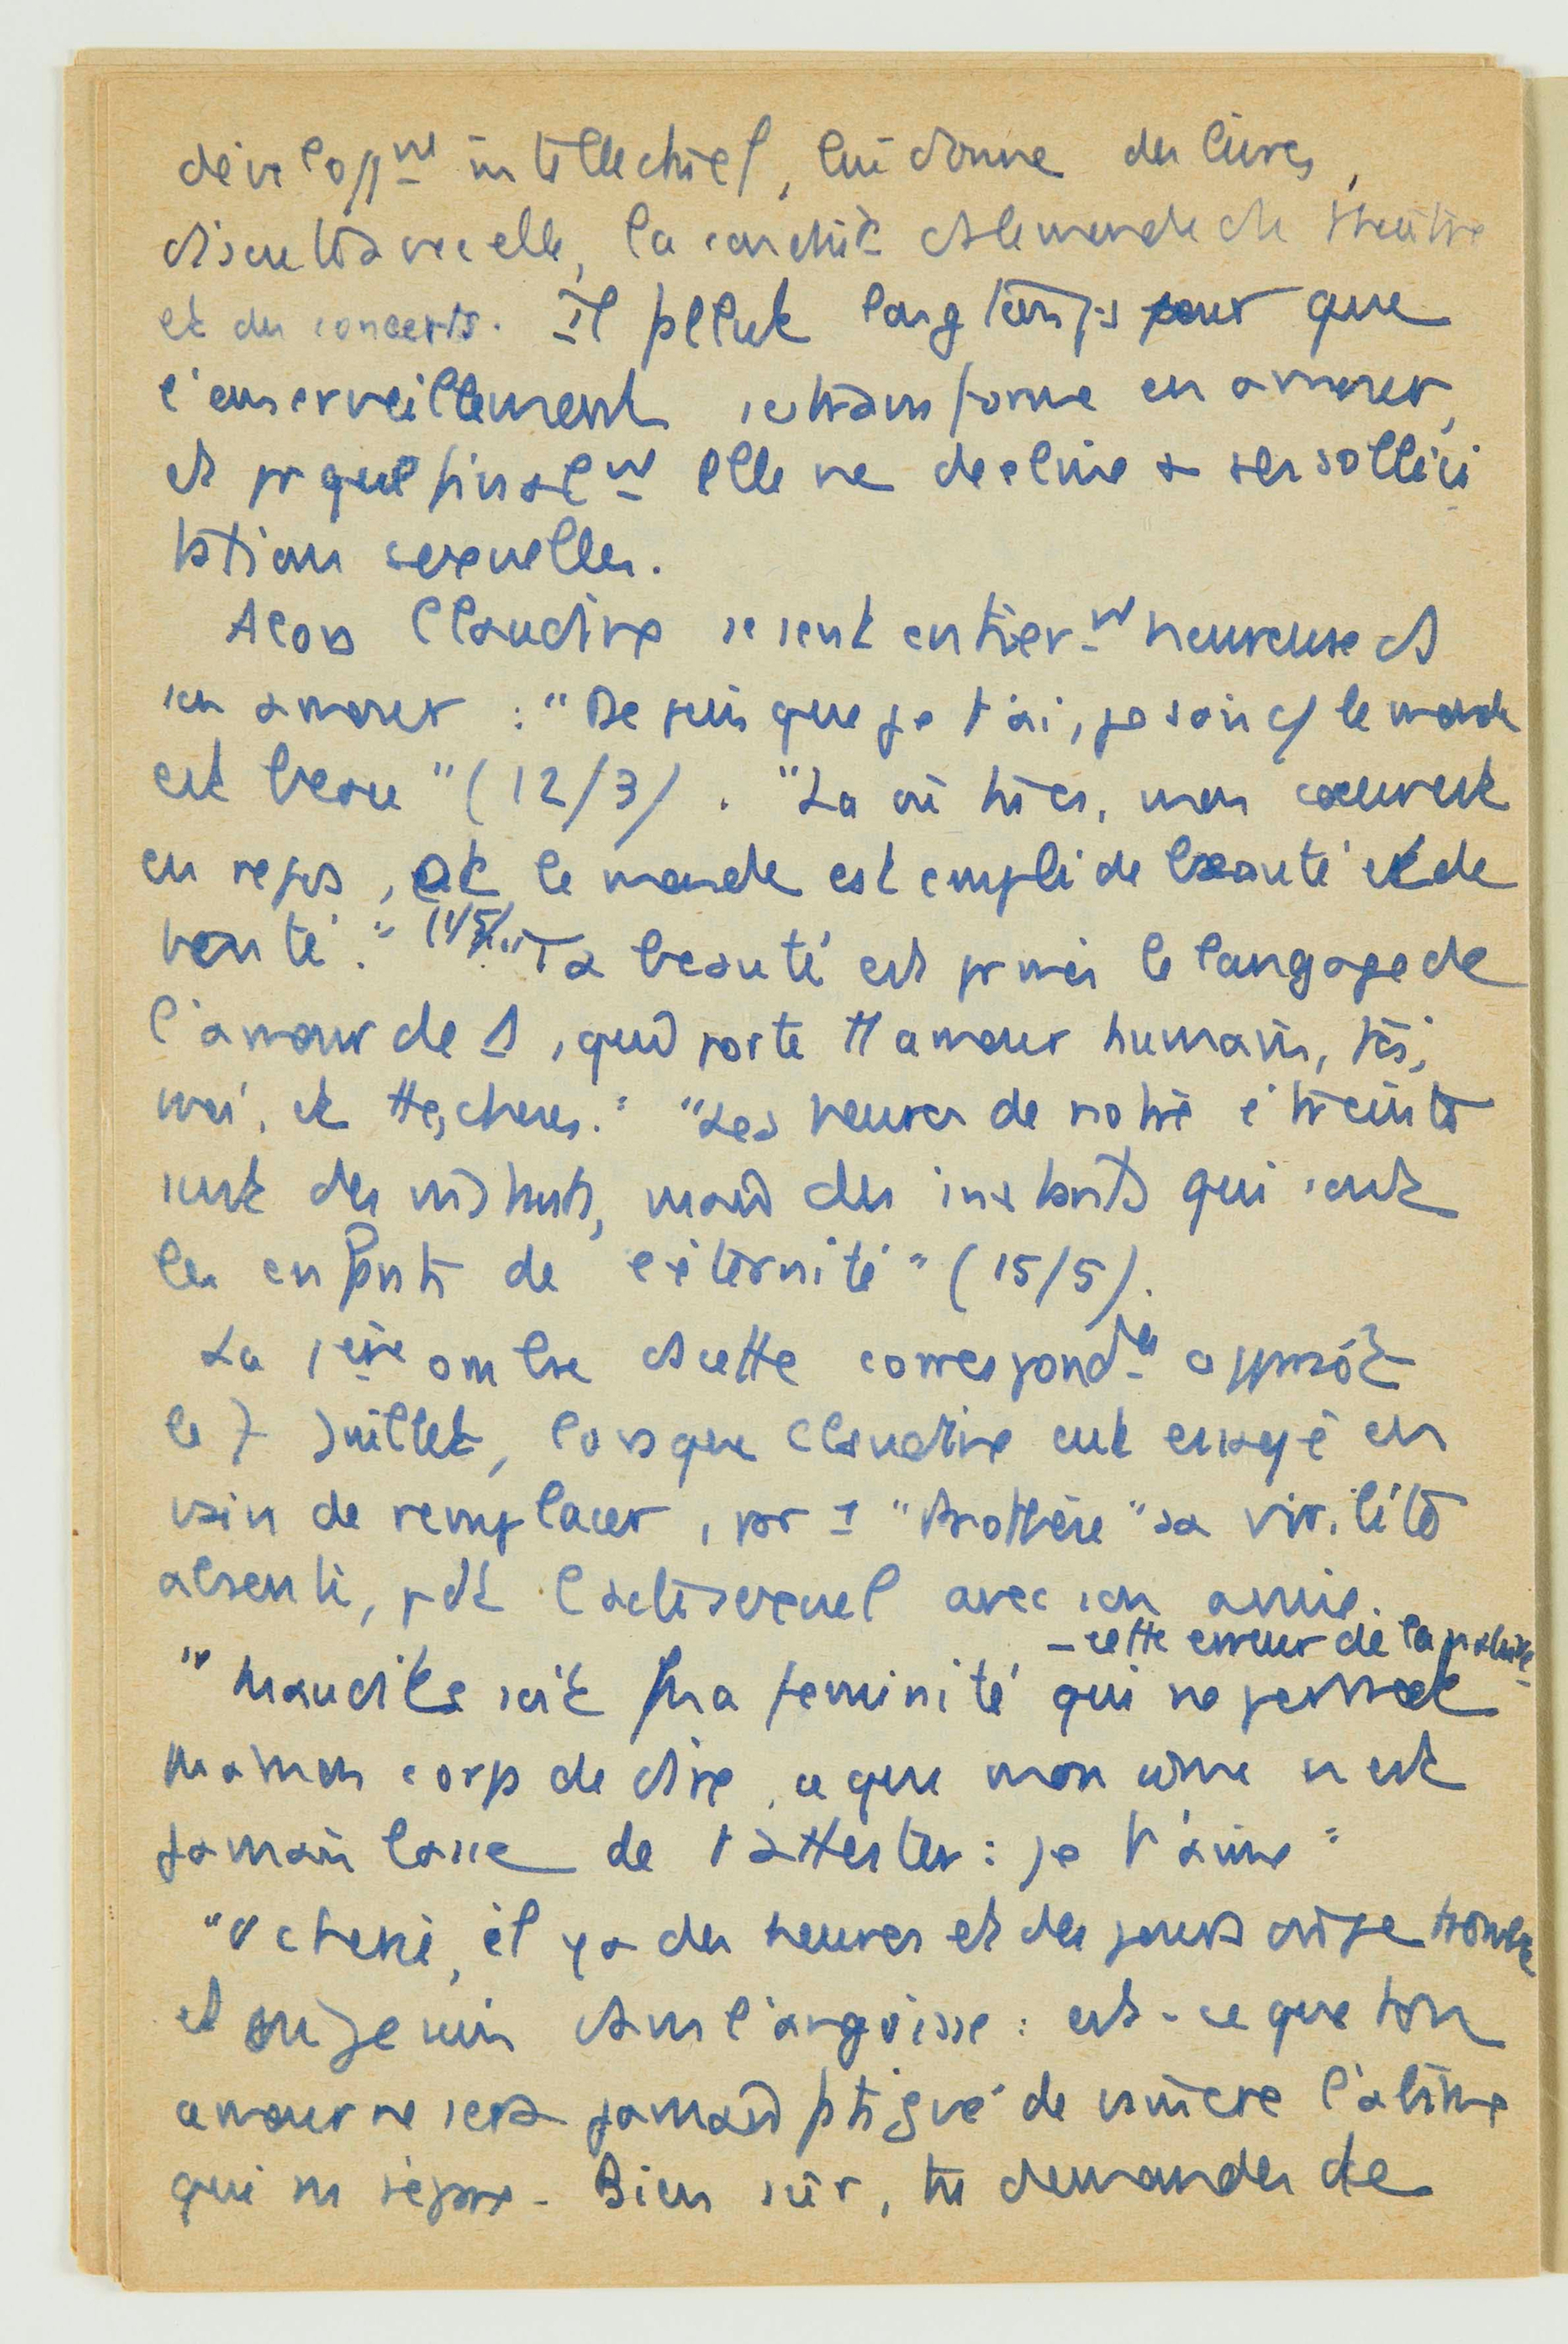 développmt intellectuel, lui donne des livres,
discute avec elle, la conduit demande de théâtre
et des concerts. Il fallut longtemps pour que
l'emerveillement se transforme en amour,
et pr que finalmt elle ne decline + ses sollici
tation sexuelles.
Alors Claudine se sent entièrmt heureuse et
en amour : "Depuis que je t'ai, je sais q/ le monde
est beau" (12/3). "La où tu es, mon coeur est
en repos, et le monde est empli de beauté et de
bonté." (1/5/. "Ta beauté est pr moi le langage de
l'amour de D, qui porte tt amour humain, toi,
moi, et ttes choses." "Les heures de notre étreinte
sont des instants, mais des instants qui sont
les enfants de l'éternité" (15/5).
La 1ère ombre de cette correspondce apparaît
le 7 Juillet, lorsque Claudine eut essayé en
vain de remplacer, par 1 "prothèse" sa virilité
absente, pdt l'acte sexuel avec son amie.
- cette erreur de la nature -
"Maudite soit ma feminité qui ne permet
pas à mon corps de dire, ce que mon âme n'est
jamais lasse de t'attester : je t'aime"
"O cherie, il y a des heures et des jours où je tremble
et où je suis dans l'angoisse : est-ce que ton
amour ne sera jamais fatigué de vaincre l'abîme
qui ns sépare. Bien sûr, tu demandes de